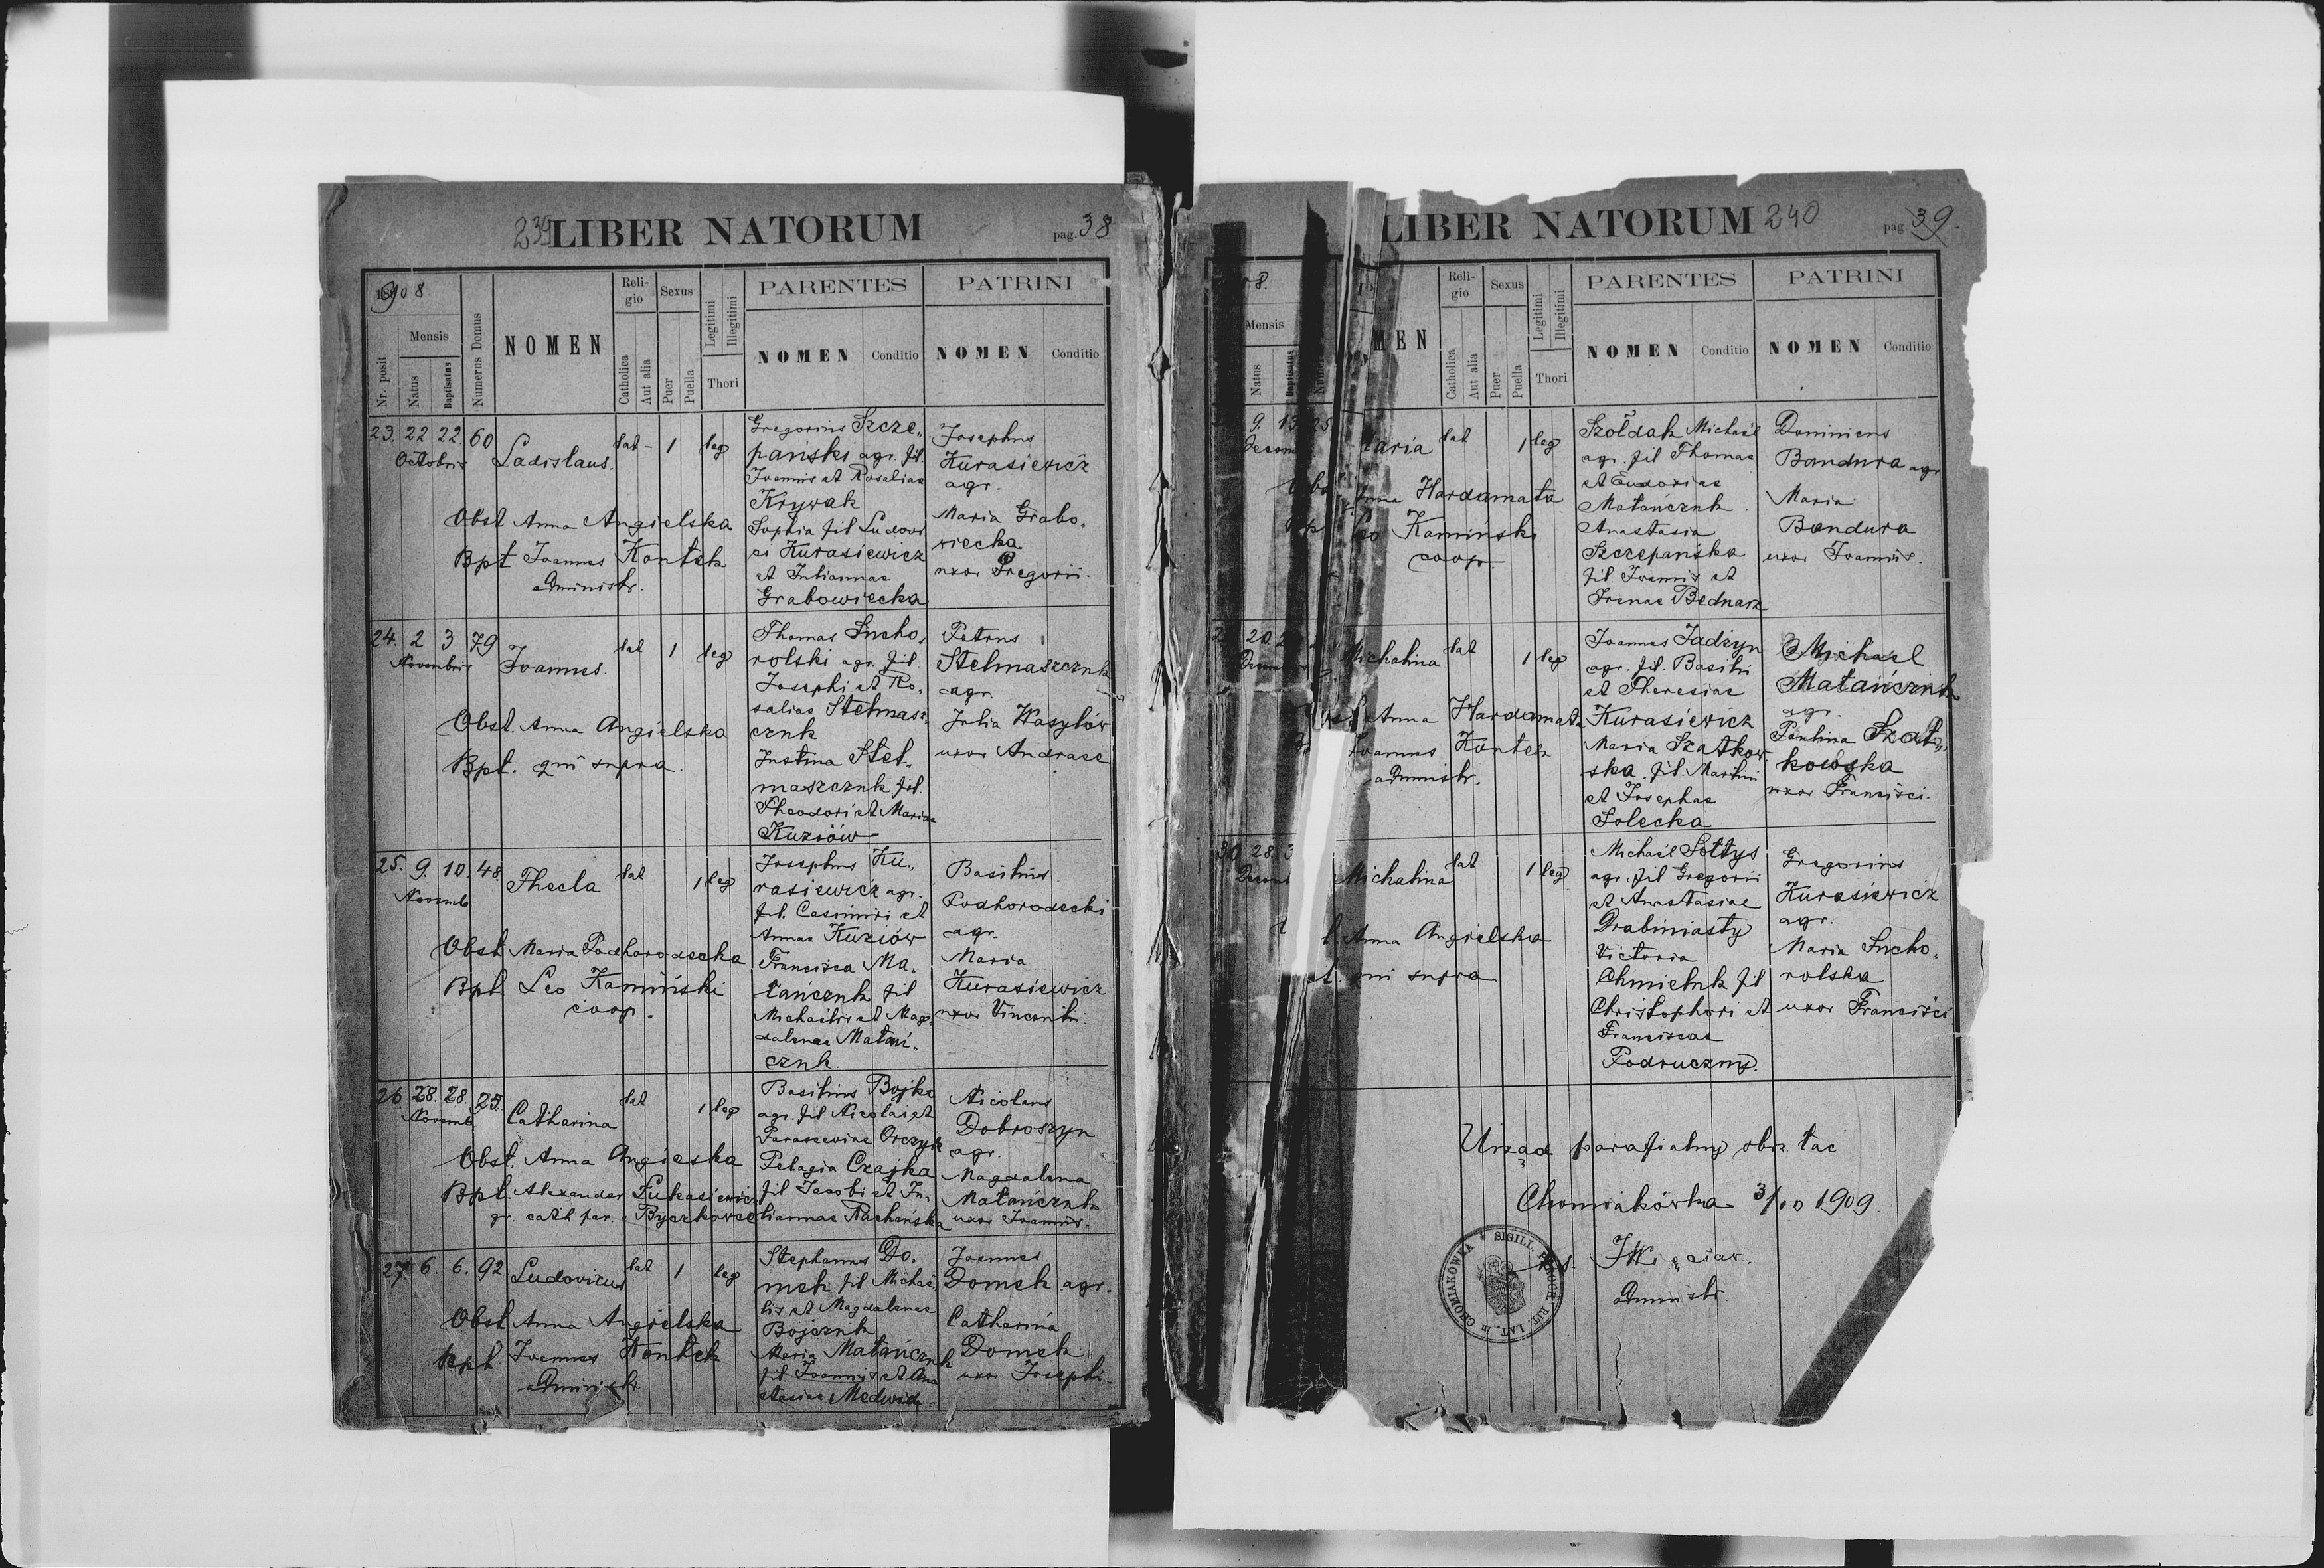 239 LIBER NATORUM pag. 38
1908.
Nr. posit
Mensis
Natus
Baptisatus
Numerus Domus
NOMEN
Religio
Catholica
Aut alia
Sexus
Puer
Puella
Legitimi
Illegitimi
Thori
PARENTES
NOMEN Conditio
PATRINI
NOMEN Conditio
23. 22 22. 60 Ladislaus. lat - 1 leg
Octobris
Obst Anna Angielska
Bpt Joannes Kontek
administr.
Gregorius Szcze„
pański agr. fil.
Joannis et Rosaliae
Krywak
Sophia fil Ludovi
ci Kurasiewicz
et Juliannae
Grabowiecka
Josephus
Kurasiewicz
agr.
Maria Grabo„
wiecka
uxor Gregorii.
24. 2 3 79 Joannes. lat 1 leg
Novembris
Obst. Anna Angielska
Bpt. qui supra.
Thomas Sucho„
rolski agr. fil.
Josephi et Ro„
saliae Stelmasz„
czuk
Justina Stel„
maszczuk fil.
Theodori et Mariae
Kuziów
Petrus
Stelmaszczuk
agr.
Julia Wasylów
uxor Andreae
25. 9. 10. 48. Thecla lat 1 leg
Novemb.
Obst Maria Podhorodecka
Bpt Leo Kamiński
coop.
Josephus Ku„
rasiewicz agr.
fil. Casimiri et
Annae Kuziów
Francisca Ma„
tańczuk fil
Michaelis et Mag„
dalenae Matań„
czuk
Basilius
Podhorodecki
agr.
Maria
Kurasiewicz
uxor Vincentii.
26 28. 28. 25. Catharina lat 1 leg
Novemb.
Obst. Anna Angieska
Bpt. Alexander Łukasiewicz
gr. cath par. Byczkowce
Basilius Bojko
agr. fil Nicolai et
Parasceviae Orczyk
Pelagia Czajka
fil Jacobi et Ju„
liannae
Nicolaus
Dobroszyn
agr.
Magdalena
Matańczuk
uxor Joannis.
27. 6. 6. 92 Ludovicus lat 1 leg
Obst Anna Angielska
Bpt Joannes Kontek
administr
Stephanus Do„
mek fil Michae„
lis et Magdalenae
Bojczuk
Maria Matańczuk
fil. Joannis et Ana
stasiae Medwid
Joannes
Domek agr.
Catharina
Domek
uxor Josephi.
LIBER NATORUM 240 pag 39.
08.
Mensis
Natus
Baptisatus
MEN
Religio
Catholica
Aut alia
Sexus
Puer
Puella
Legitimi
Illegitimi
Thori
PARENTES
NOMEN Conditio
PATRINI
NOMEN Conditio
9. 13 25 aria lat 1 leg
Anna Hardamata
Leo Kamiński
coop.
Szołdak Michael
agr. fil Thomae
et Eudoxiae
Matańczuk.
Anastasia
Szczepańska
fil. Joannis et
Irenae Bednarz
Dominicus
Bandura agr
Maria
Bandura
uxor Joannis.
20 Michalina lat 1 leg
Anna Hardamata
Joannes Kontek
administr.
Joannes Jadzyn
agr. fil. Basilii
et Theresiae
Kurasiewicz
Maria Szatkow
ska fil. Martini
et Josephae
Solecka
Michael
Matańczuk
agr.
Paulina Szat„
kowska
uxor Francisci.
30 28. 3 Michalina lat 1 leg
Anna Angielska
qui supra
Michael Sołtys
agr. fil Gregorii
et Anastasiae
Drabiniasty
Victoria
Chmieluk fil
Christophori et
Franciscae
Podruczny.
Gregorius
Kurasiewicz
agr.
Maria Sucho„
rolska
uxor Francisci
Urząd parafialny obrz łac
Chomiakówka 3/10 1909.
Administr
SIGILL. PAROCH. RIT. LAT. in CHOMIAKÓWKA